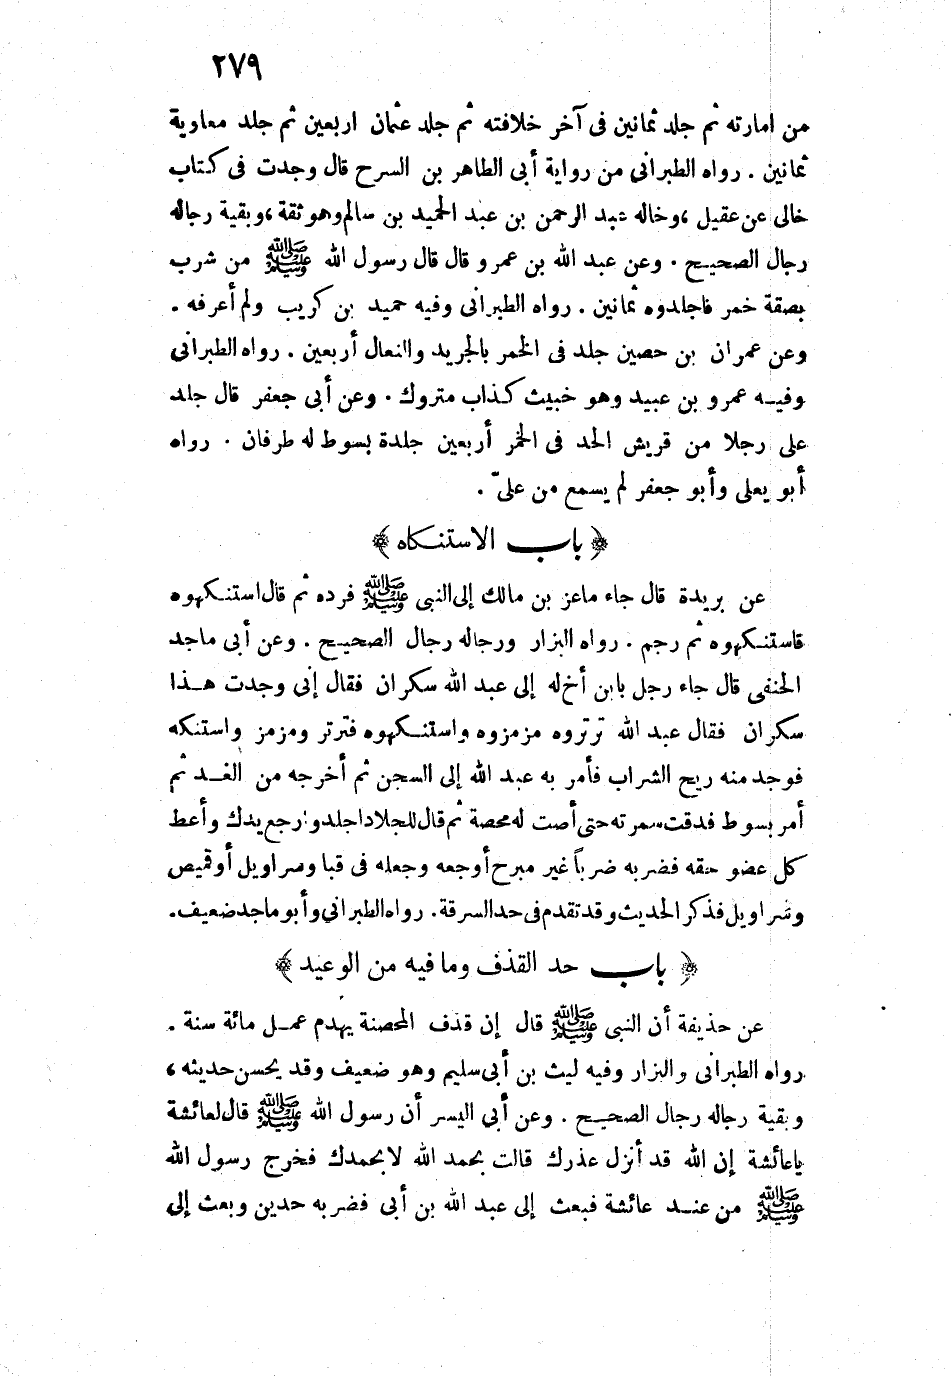 ٢٧٩
من امارته ثم جلد ثمانين فى آخر خلافته ثم جلد عثمان اربعين ثم جلد معاوية
ثمانين . رواه الطبرانى من رواية أبى الطاهر بن السرح قال وجدت فى كتاب
خالى عن عقيل ، وخاله عبد الرحمن بن عبد الحميد بن سالم وهو ثقة ، وبقية رجاله
رجال الصحيح . وعن عبد الله بن عمرو قال قال رسول الله ﷺ من شرب
بصقة خمر فاجلدوه ثمانين . رواه الطبرانى وفيه حميد بن كريب ولم أعرفه .
وعن عمران بن حصين جلد فى الخمر بالجريد والنعال أربعين . رواه الطبرانى
وفيه عمرو بن عبيد وهو خبيث كذاب متروك . وعن أبى جعفر قال جلد
على رجلا من قريش الحد فى الخمر أربعين جلدة بسوط له طرفان . رواه
أبو يعلى وأبو جعفر لم يسمع من علىّ .
﴿ باب الاستنكاه ﴾
عن بريدة قال جاء ماعز بن مالك إلى النبى ﷺ فرده ثم قال استنكهوه
فاستنكهوه ثم رجم . رواه البزار ورجاله رجال الصحيح . وعن أبى ماجد
الحنفى قال جاء رجل بابن أخ له إلى عبد الله سكران فقال إنى وجدت هذا
سكران فقال عبد الله ترتروه مزمزوه واستنكهوه فترتر ومزمز واستنكه
فوجد منه ريح الشراب فأمر به عبد الله إلى السجن ثم أخرجه من الغد ثم
أمر بسوط فدقت ثمرته حتى أضت له محصة ثم قال للجلاد اجلد وارجع يدك وأعط
كل عضو حقه فضربه ضرباً غير مبرح أوجعه وجعله فى قبا وسراويل أو قميص
وسراويل فذكر الحديث وقد تقدم فى حد السرقة . رواه الطبرانى وأبو ماجد ضعيف .
﴿ باب حد القذف وما فيه من الوعيد ﴾
عن حذيفة أن النبى ﷺ قال إن قذف المحصنة يهدم عمل مائة سنة .
رواه الطبرانى والبزار وفيه ليث بن أبى سليم وهو ضعيف وقد يحسن حديثه ،
وبقية رجاله رجال الصحيح . وعن أبى اليسر أن رسول الله ﷺ قال لعائشة
يا عائشة إن الله قد أنزل عذرك قالت بحمد الله لا بحمدك فخرج رسول الله
ﷺ من عند عائشة فبعث إلى عبد الله بن أبى فضربه حدين وبعث إلى